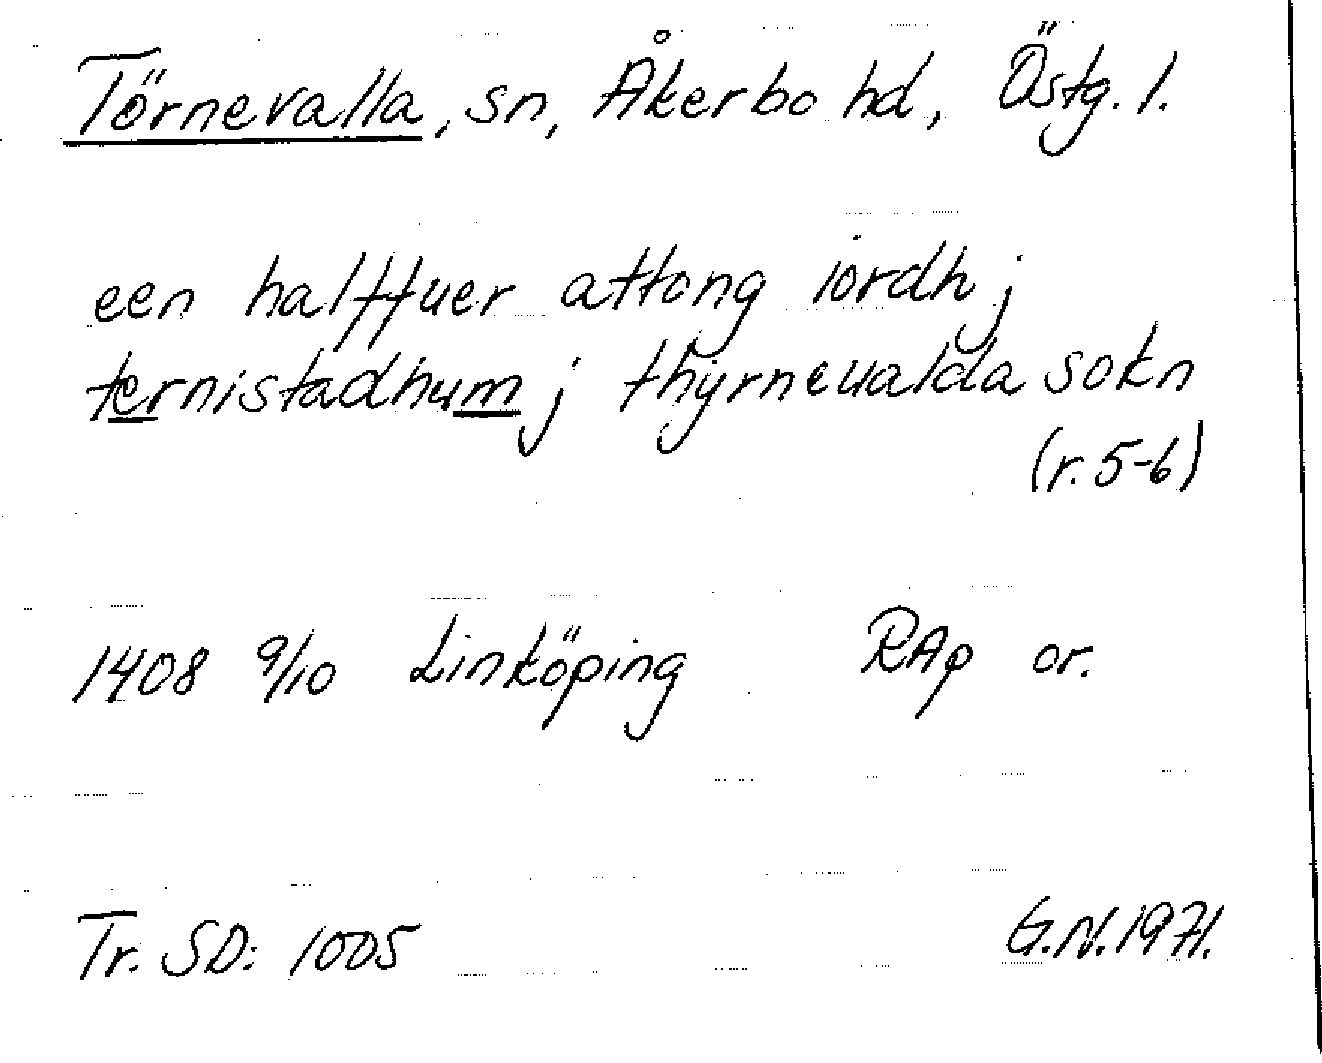 Törnevalla, sn, Åkerbo hd, Östg. l.
een halffuer attong iordh j
ternistadhum j thyrneualda sokn
(r. 5-6)
1408 9/10 Linköping RAp or.
Tr. SD: 1005 G.N. 1971.